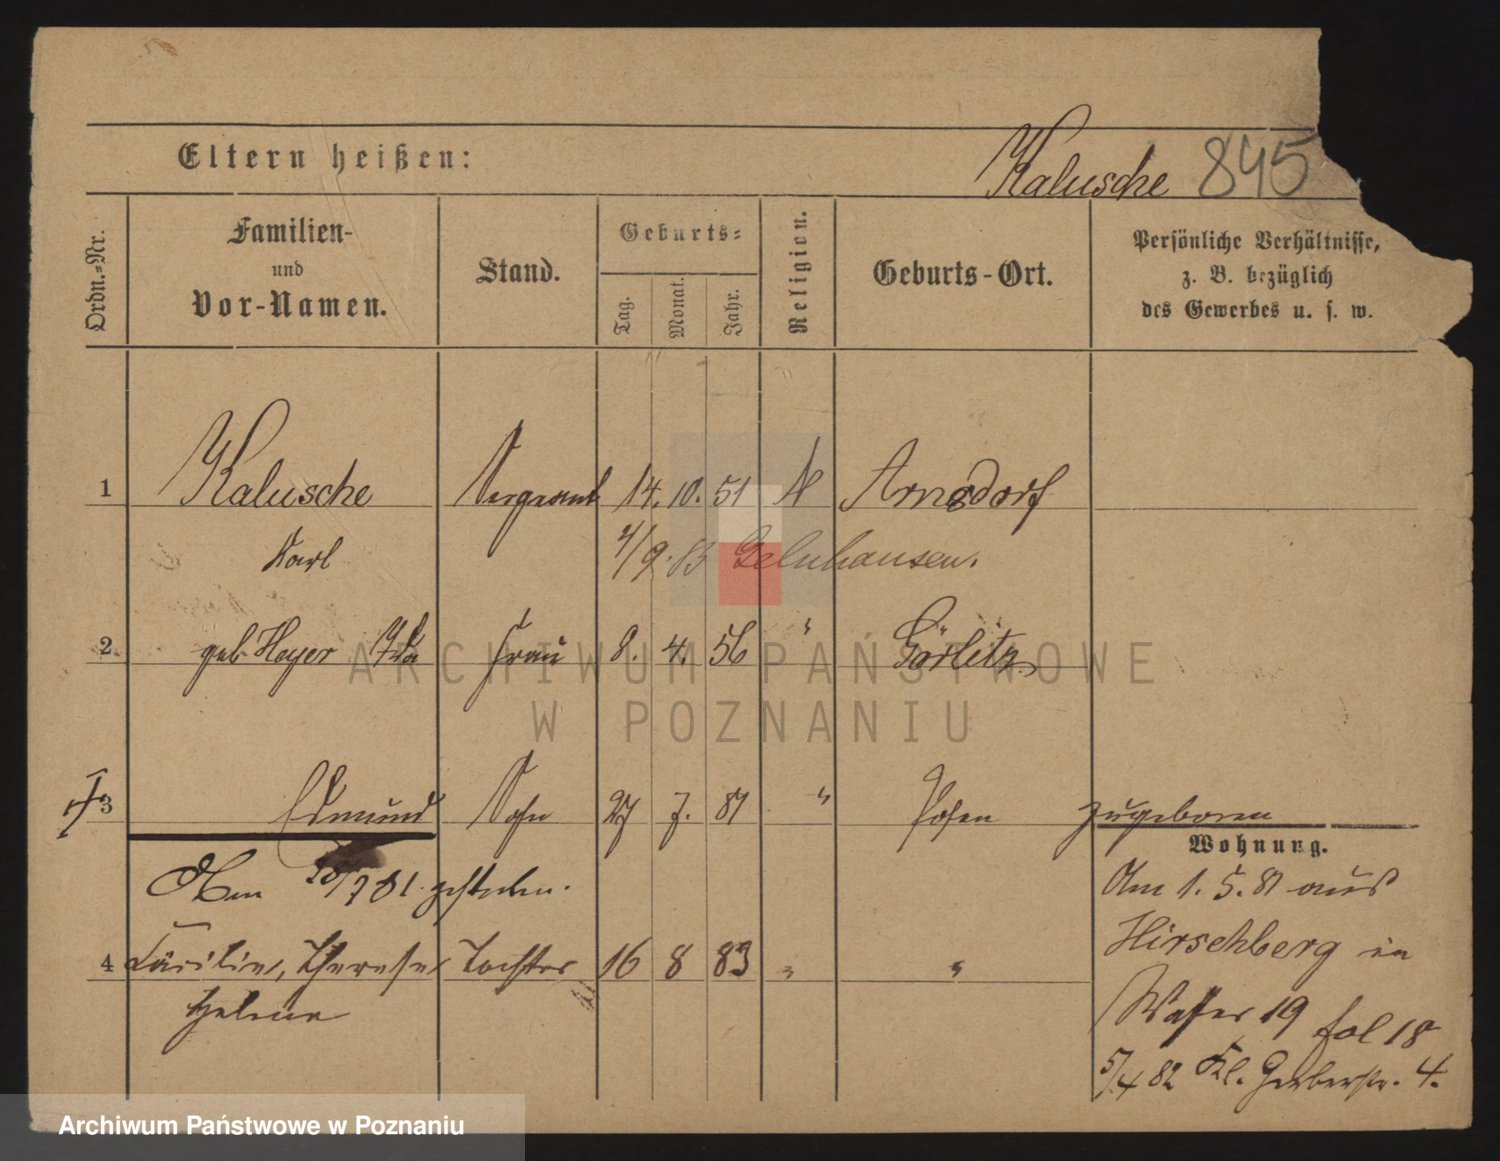 Eltern heißen:
Kalusche 845
Ordn.-Nr.
Familien-
und
Vor-Namen.
Stand.
Geburts-
Tag.
Monat.
Jahr.
Religion.
Geburts-Ort.
Persönliche Verhältnisse,
z. B. bezüglich
des Gewerbes u. s. w.
1 Kalusche Sergeant 14. 10. 51 Arnsdorf
Karl
/9. 83 Gelnhausen.
2 geb. Heyer Ida Frau 8. 4. 56 " Görlitz
3 Edmund Sohn 27 7. 81 " Posen zugeboren
Am /7 81. gestorben.
4 Cäcilie, Therese Tochter 16 8 83 " "
Helene
Wohnung.
Am 1. 5. 81 aus
Hirschberg in
Wasser 19 fol 18
5/4 82 Kl. Gerberstr. 4.
ARCHIWUM PAŃSTWOWE
W POZNANIU
Archiwum Państwowe w Poznaniu